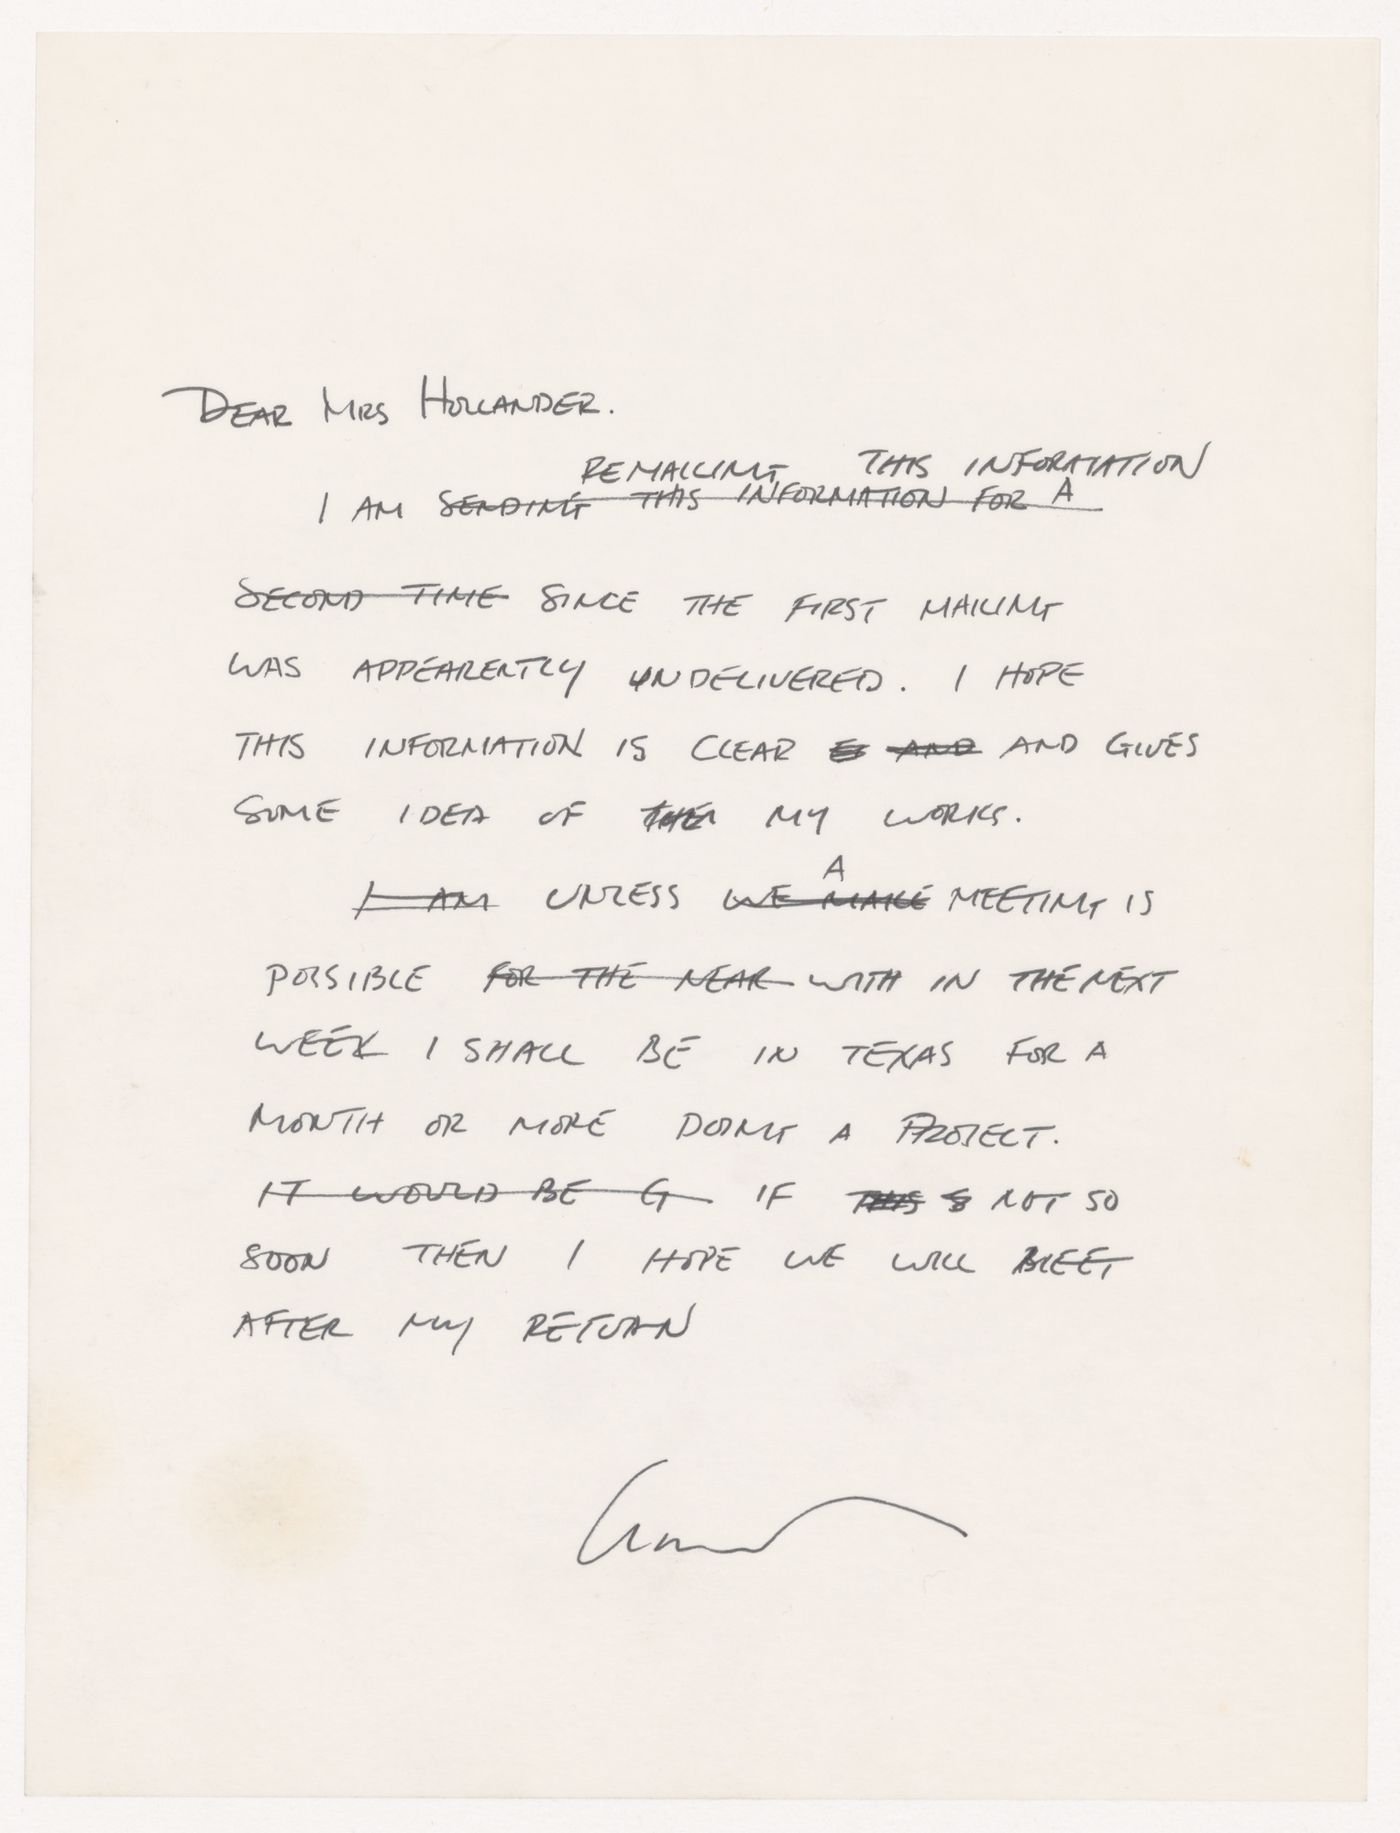 DEAR MRS HOLLANDER.
REMAILING THIS INFORMATION
I AM SENDING THIS INFORMATION FOR A
SECOND TIME SINCE THE FIRST MAILING
WAS APPEARENTLY UNDELIVERED. I HOPE
THIS INFORMATION IS CLEAR AND AND GIVES
SOME IDEA OF THE MY WORKS.
A
I AM UNLESS WE MAKE MEETING IS
POSSIBLE FOR THE NEAR WITH IN THE NEXT
WEEK I SHALL BE IN TEXAS FOR A
MONTH OR MORE DOING A PROJECT.
IT WOULD BE G IF THIS IS NOT SO
SOON THEN I HOPE WE WILL MEET
AFTER MY RETURN